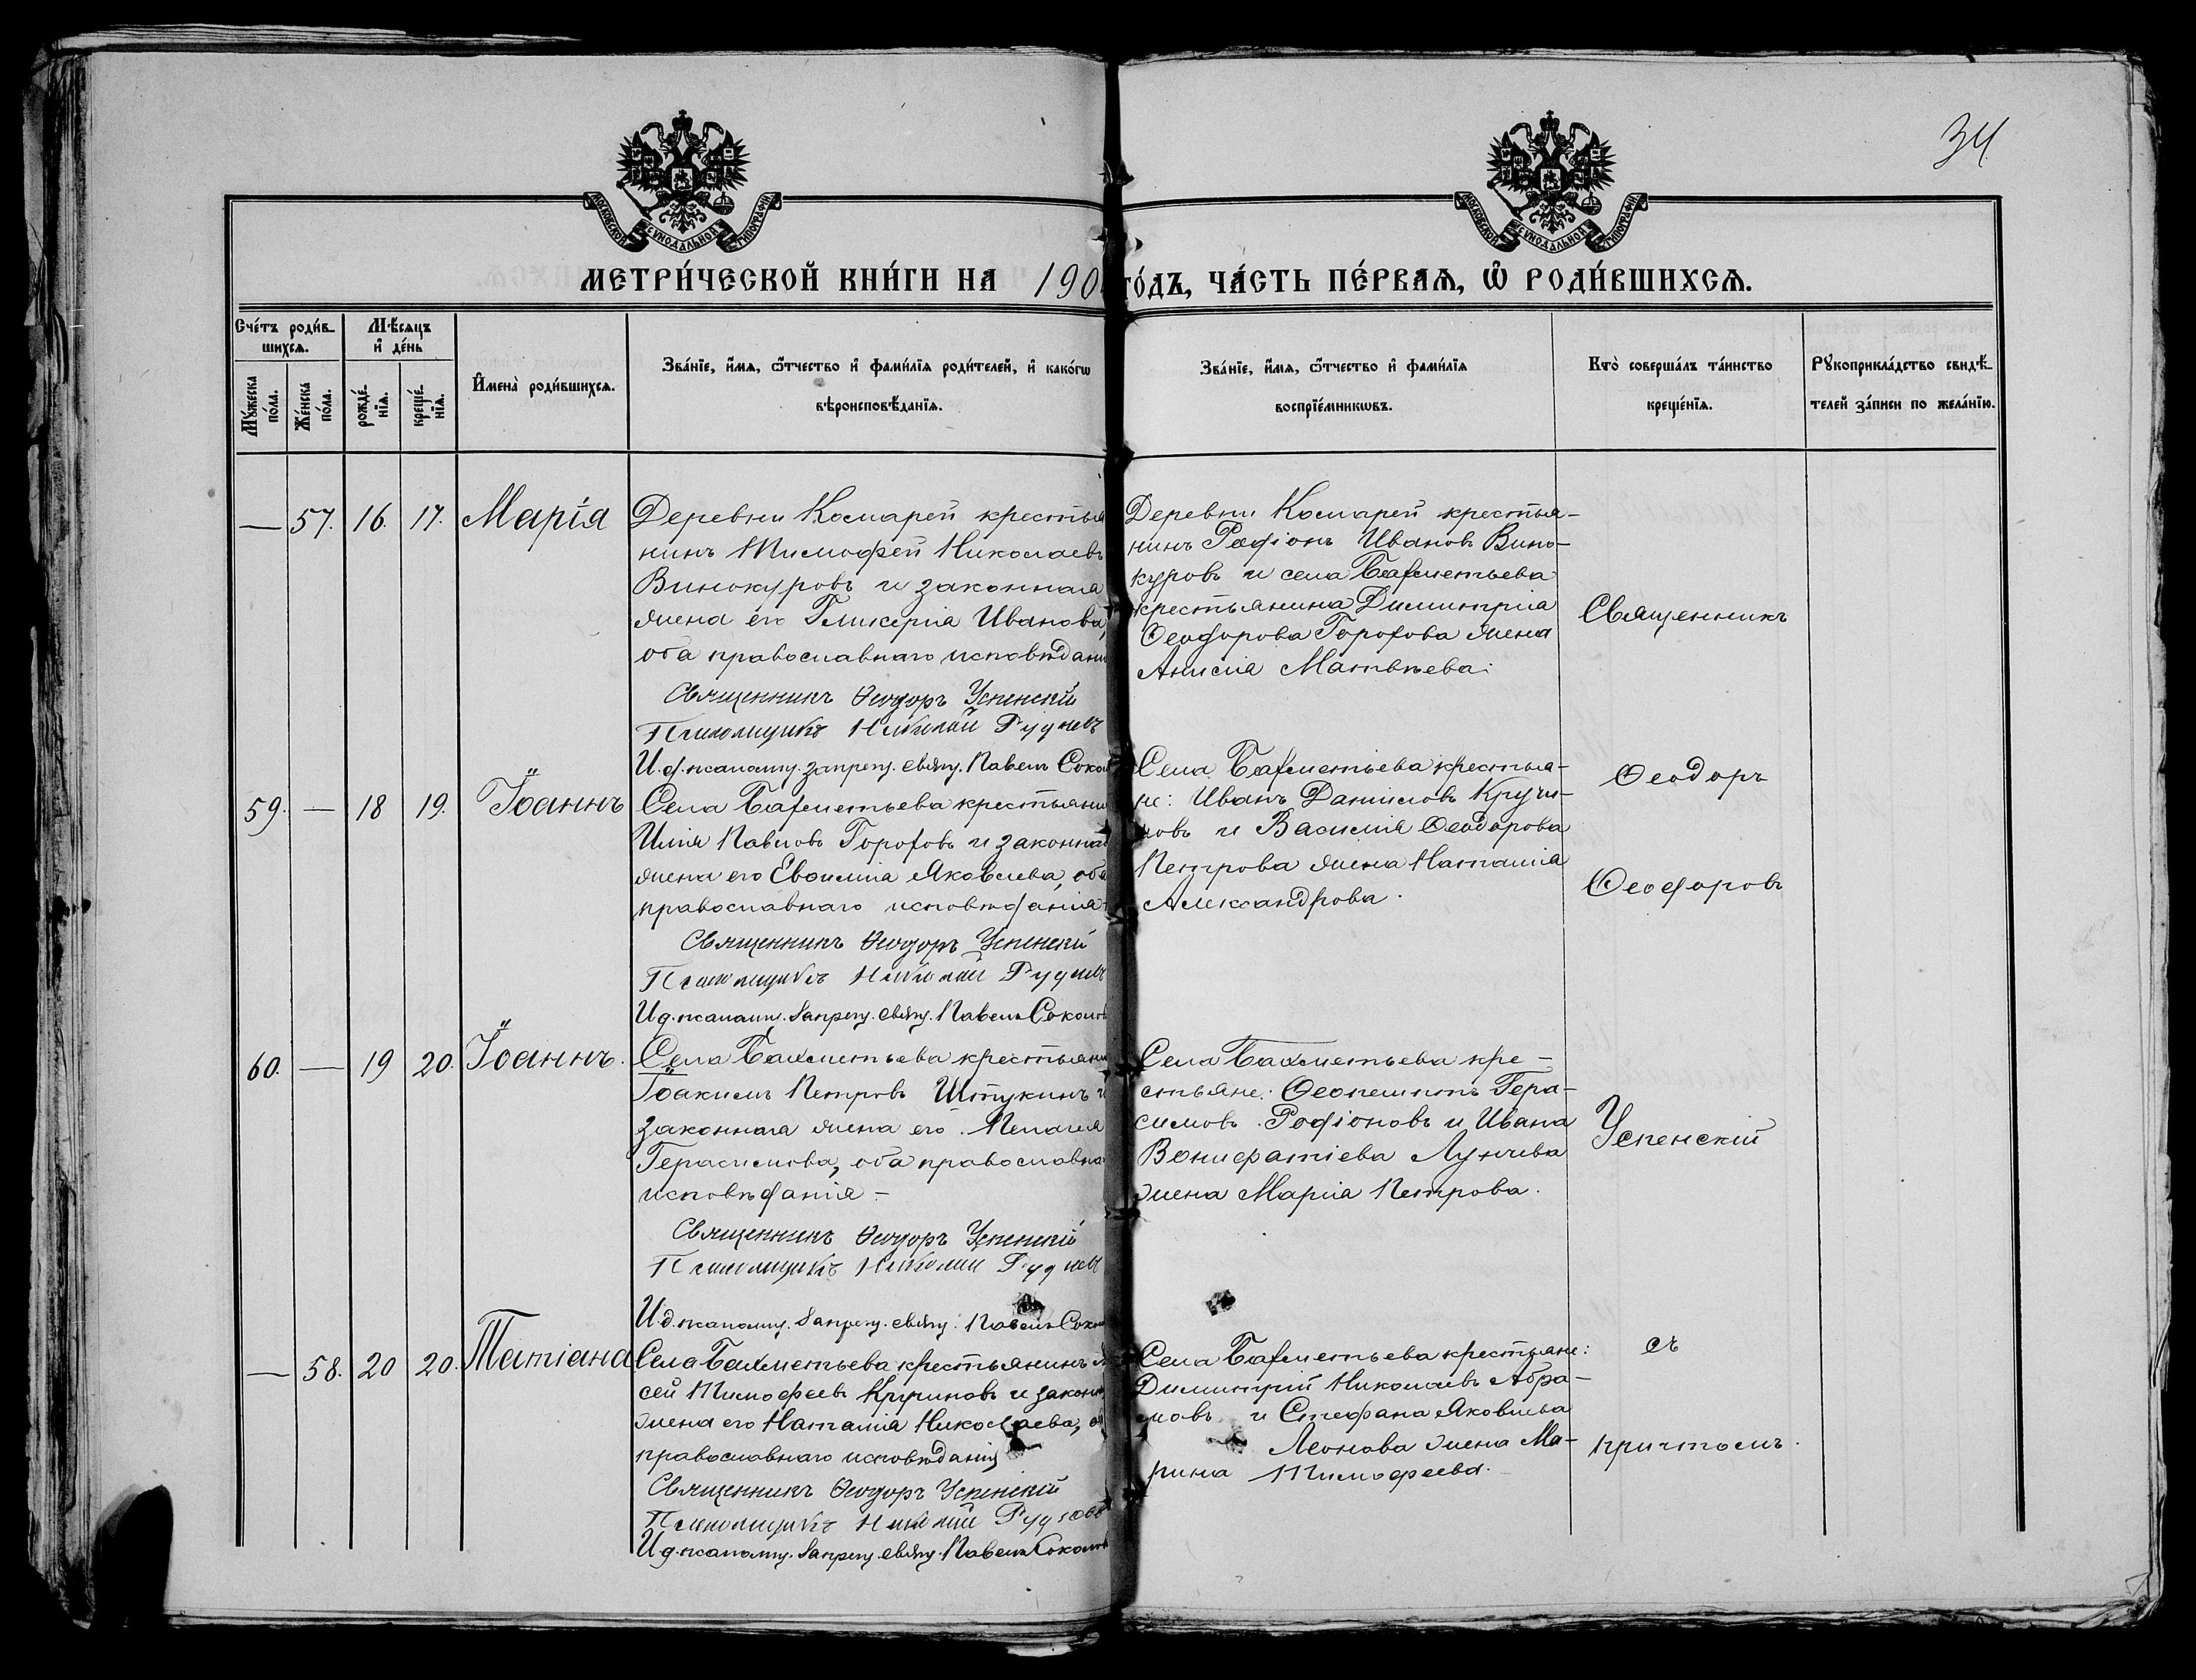 34
МОСКОВСКОЙ СѴНОДАЛЬНОЙ ТИПОГРАФІИ
МОСКОВСКОЙ СѴНОДАЛЬНОЙ ТИПОГРАФІИ
МЕТРИ́ЧЕСКОЙ КНИ́ГИ НА 190 ГО́ДЪ, ЧА́СТЬ ПЕ́РВАѦ, Ѽ РОДИ́ВШИХСѦ.
Сче́тъ роди́в-
шихсѧ.
Мꙋ́жеска
по́ла.
Же́нска
по́ла.
Мѣ́сѧцъ
и҆ де́нь
рожде́-
нїѧ.
креще́-
нїѧ.
И҆мена̀ роди́вшихсѧ.
Зва́нїе, и҆́мѧ, ѻ҆́тчество и҆ фами́лїѧ роди́телей, и҆ како́гѡ
вѣроисповѣ́данїѧ.
Зва́нїе, и҆́мѧ, ѻ҆́тчество и҆ фами́лїѧ
воспрїе́мникѡвъ.
Кто̀ соверша́лъ та́инство
креще́нїѧ.
Рꙋкоприкла́дство свидѣ́-
телей за́писи по жела́нїю.
— 57. 16. 17. Марія
Деревни Комарей крестья
нинъ Тимофей Николаевъ
Винокуровъ и законная
жена его Гликерія Иванова,
оба православнаго исповѣдани
Священникъ Ѳеодоръ Успенскій
Псаломщикъ Николай Рудневъ
И.д. псаломщ. запрещ. свящ. Павелъ Сокол
Деревни Комарей крестья-
нинъ Родіонъ Ивановъ Вино-
куровъ и села Бахметьева
крестьянина Димитрія
Ѳеодорова Горохова жена
Анисія Матвѣева.
59. — 18 19. Іоаннъ
Села Бахметьева крестьяни
Илія Павловъ Гороховъ и законная
жена его Евѳимія Яковлева, оба
православнаго исповѣданія
Священникъ Ѳеодоръ Успенскій
Псаломщикъ Николай Рудневъ
И.д. псаломщ. запрещ. свящ. Павелъ Соколов
Села Бахметьева крестья-
не: Иванъ Даниловъ Кручи-
новъ и Василія Ѳеодорова
Петрова жена Наталія
Александрова.
60. — 19 20. Іоаннъ.
Села Бахметьева крестьяни
Іоакимъ Петровъ Штукинъ и
законная жена его Пелагія
Герасимова, оба православна
исповѣданія —
Священникъ Ѳеодоръ Успенскій
Псаломщикъ Николай Руднев
И.д. псаломщ. запрещ. свящ. Павелъ Сокол
Села Бахметьева кре-
стьяне: Ѳеопемптъ Гера-
симовъ Родіоновъ и Ивана
Вонифатіева Лунева
жена Марія Петрова.
— 58. 20 20. Татіана
Села Бахметьева крестьянинъ
сей Тимофеевъ Кручиновъ и законн
жена его Наталія Николаева, о
православнаго исповѣданія
Священникъ Ѳеодоръ Успенскій
Псаломщикъ Николай Рудневъ
И.д. псаломщ. запрещ. свящ. Павелъ Соколов
Села Бахметьева крестьяне:
Димитрій Николаевъ Абра-
мовъ и Стефана Яковлева
Леонова жена Ма-
рина Тимофеева.
Священникъ
Ѳеодоръ
Ѳеодоровъ
Успенскій
съ
причтомъ.